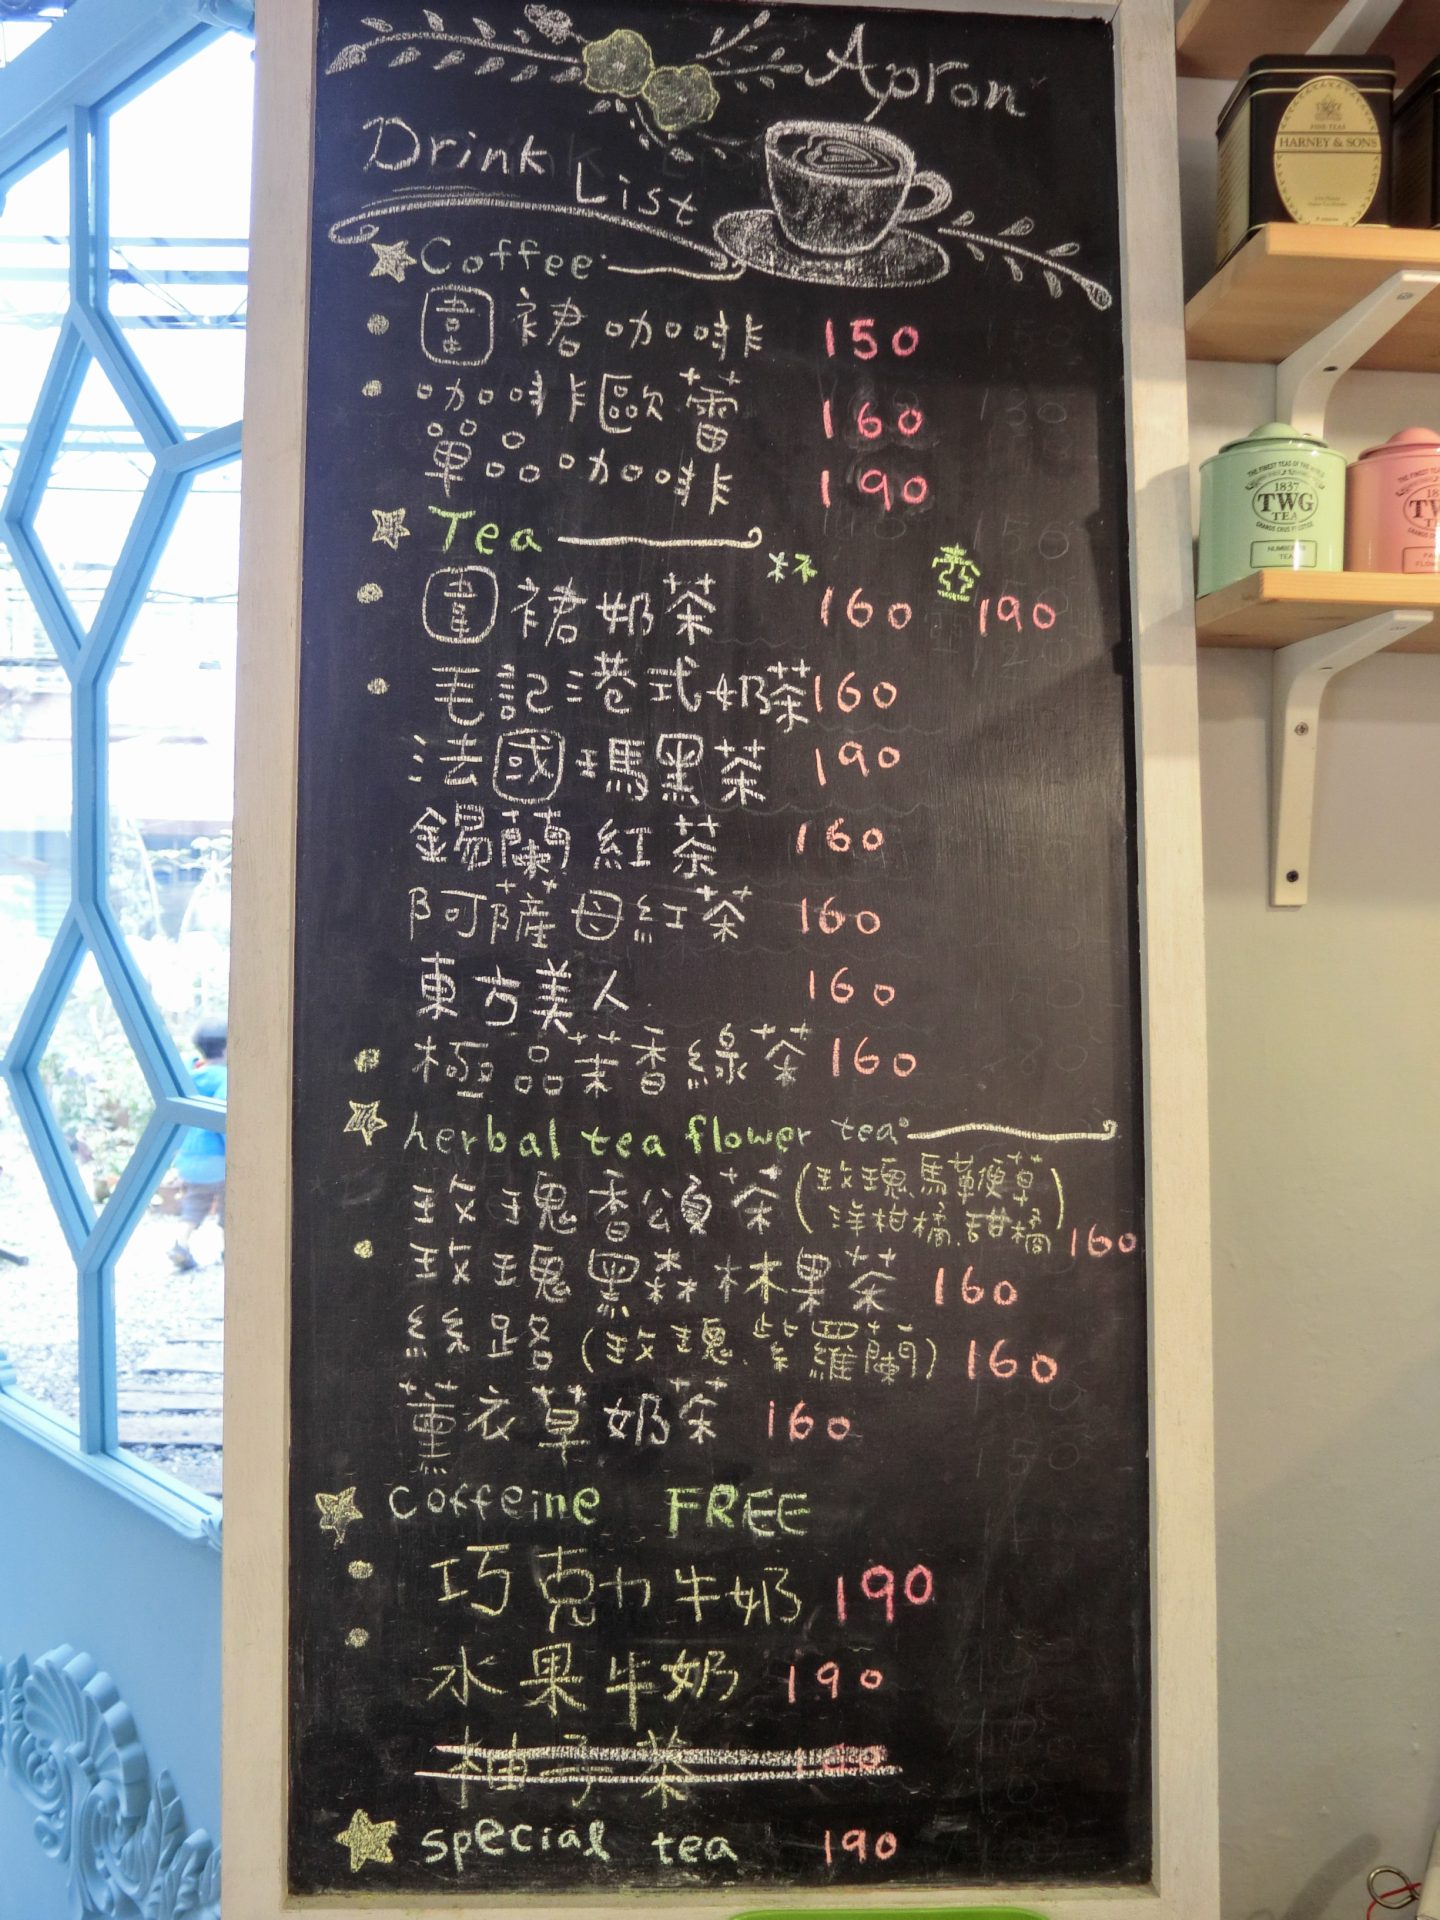 Apron
Drink List
Coffee
圍裙咖啡 150
咖啡歐蕾 160
單品咖啡 190
Tea 杯 壺
圍裙奶茶 160 190
毛記港式奶茶 160
法國瑪黑茶 190
錫蘭紅茶 160
阿薩母紅茶 160
東方美人 160
極品茉香綠茶 160
herbal tea flower tea
玫瑰香頌茶 (玫瑰.馬鞭草
洋柑橘.甜橘) 160
玫瑰黑森林果茶 160
絲路 (玫瑰.紫羅蘭) 160
薰衣草奶茶 160
Coffeine FREE
巧克力牛奶 190
水果牛奶 190
柚子茶
special tea 190
FINE TEAS
HARNEY & SONS
THE FINEST TEAS OF THE WORLD
1837
TWG
TEA
GRANDS CRUS PRESTIGE
TEA